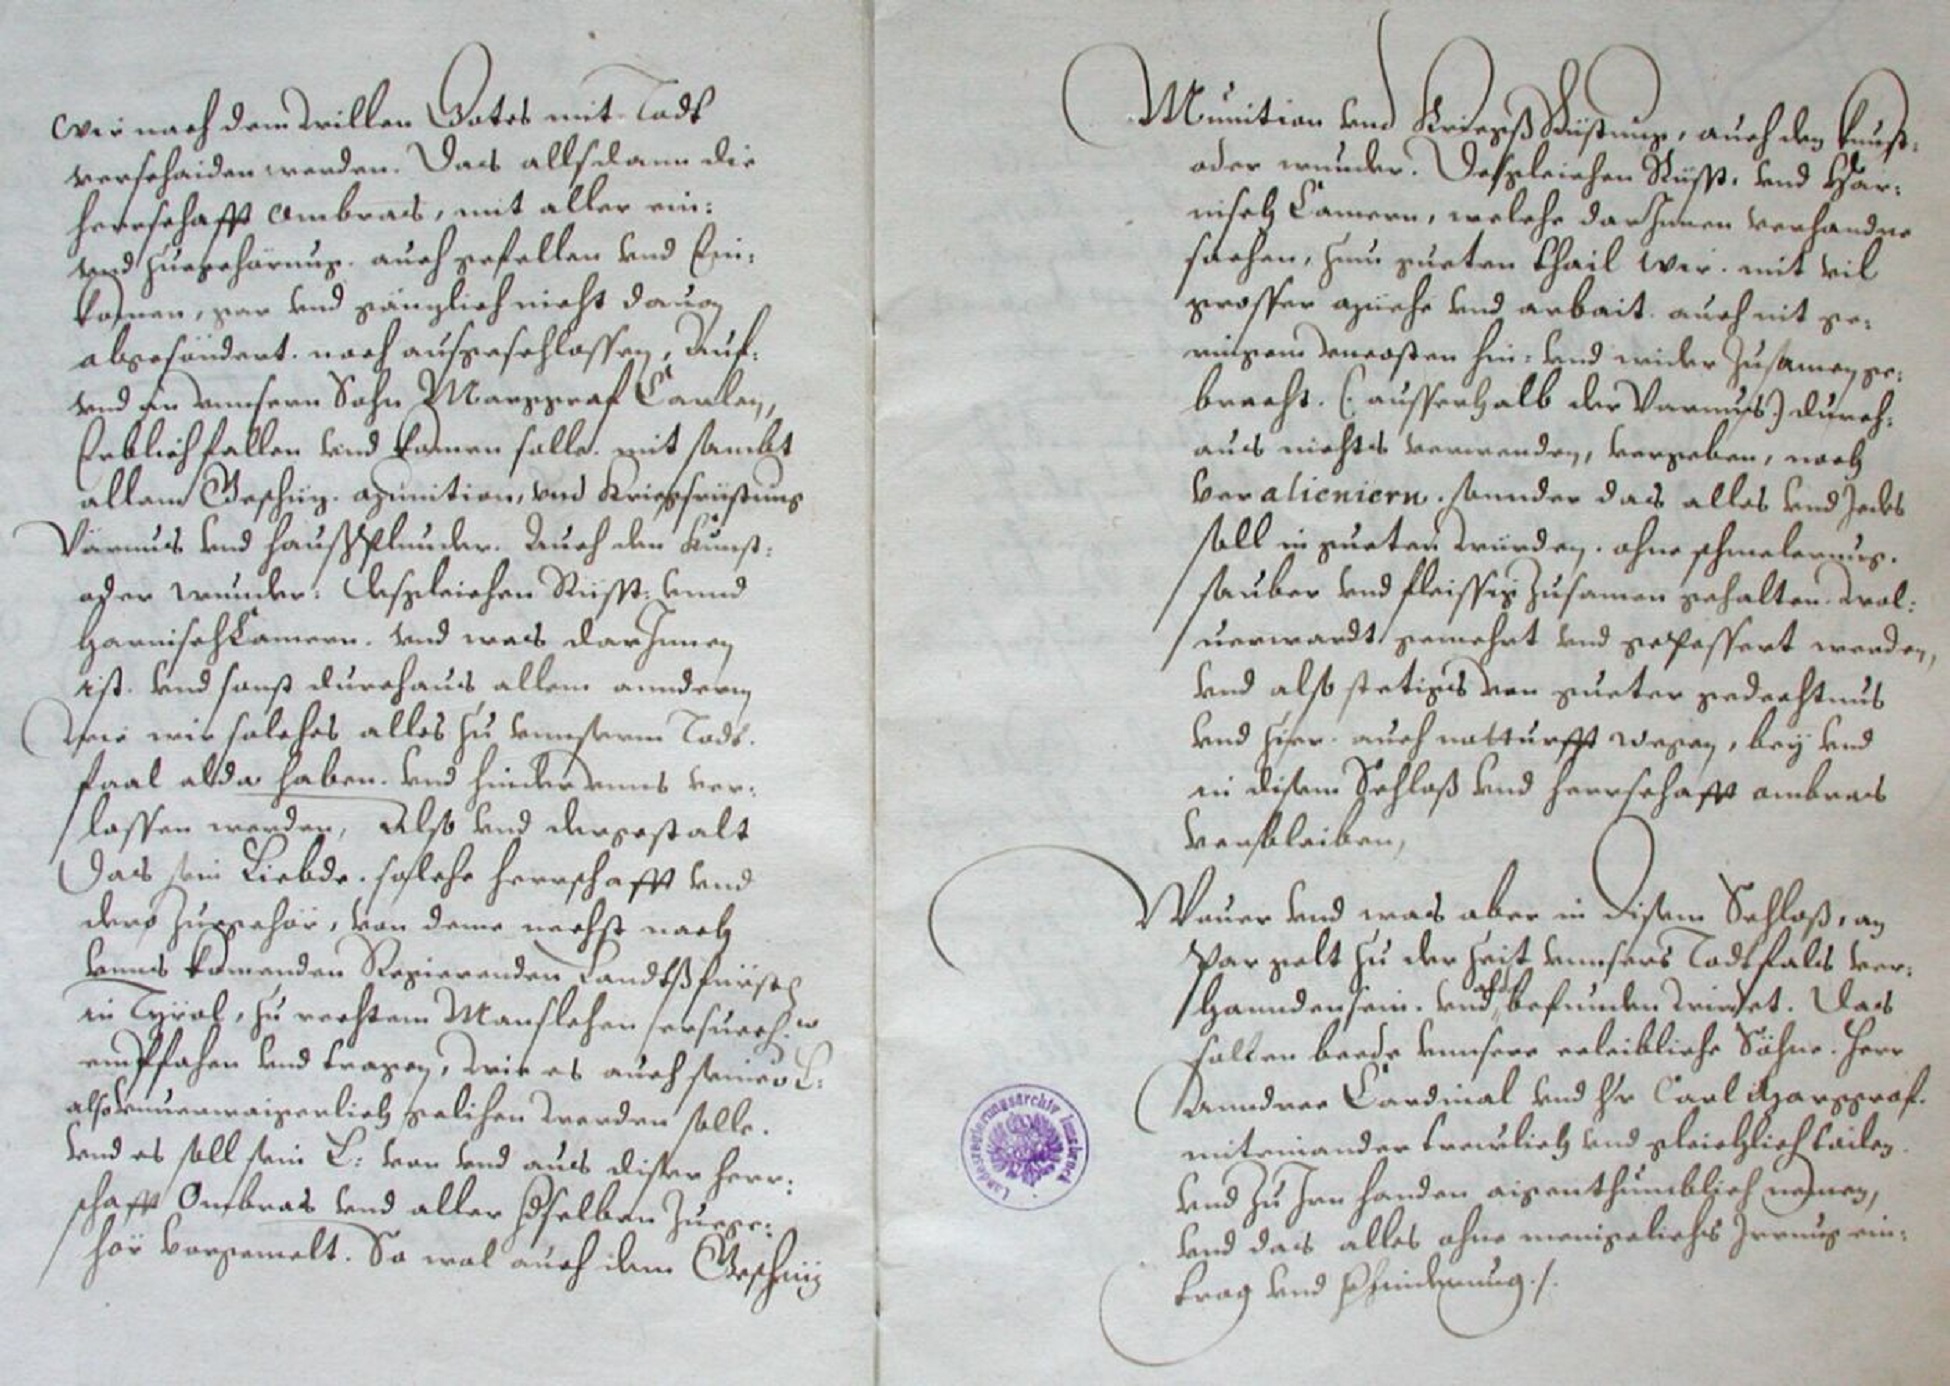 Wir nach dem willen Gotes mit Todt
verschaiden werden. Das allsdann die
herrschafft Ombras, mit aller ein:
vnd zuegehörung. auch gefellen vnd Ein:
komen, gar vnd gänzlich nicht dauon
abgesöndert. noch ausgeschlossen, Auf:
vnd an vnnsern Sohn Marggraf Carlen,
Erblich fallen vnd komen solle. mit sambt
allem Geschüz. Munition, vnd Kriegsrüstung
Varnus vnd haußplunder. Auch den Kunst:
oder wunder: desgleichen Rüsst: vnnd
HarnischCamern. vnd was darJnnen
ist. vnd sonst durchaus allem anndern
wie wir solches alles zu vnnserm Todt.
faal alda haben. vnd hinder vnns ver:
lassen werden, Also vnd dergestalt
Das sein Liebde. solche herrschafft vnd
dero zuegehör, von deme nechst nach
vnns komenden Regierenden Landtßfürsten
in Tyrol, zu rechtem Manslehen ersuech:
empfahen vnd tragen, wie es auch seiner L:
also vnuerwaigerlich gelihen werden solle.
vnd es soll sein L: von vnd aus diser herr:
schafft Ombras vnd aller derselben Zuege:
hör vorgemelt. So wol auch dem Geschüz
Munition vnd Kriegß Rüstung, auch den kunst:
oder wunder. Desgleichen Rüsst: vnd Har:
nisch Camern, welche darJnnen verhandne
sachen, zum gueten thail wir. mit vil
grosser müehe vnd arbait. auch nit ge:
ringem vncossten hin: vnd wider zusamen ge:
bracht. (: ausserhalb der Varnus:) durch:
aus nichts verwenden, vergeben, noch
veralieniern. sonnder das alles vnd Jedes
soll in gueten würden. ohne schmelerung.
sauber vnd fleissig zusamen gehalten. wol:
uerwardt gemehrt vnd gepessert werden,
vnd also stetigs von gueter gedechtnus
vnd zier. auch notturfft wegen, bey vnd
in disem Schloß vnd herrschafft ombras
verbleiben,
Wouer vnd was aber in disem Schloß, an
Par gelt zu der zeit vnnsers Todtfals ver:
hannden sein. vnd alda befunden wirdet. Das
sollen beede vnnsere eeleibliche Söhne. Herr
Anndree Cardinal vnd Hr Carl Marggraf.
miteinander treulich vnd gleichlich tailen.
vnd zu Jren handen aigenthumblich nemen,
vnd das alles ohne meniglichs Jrrung ein:
trag vnd Verhinderung ./.
Landesregierungsarchiv Innsbruck